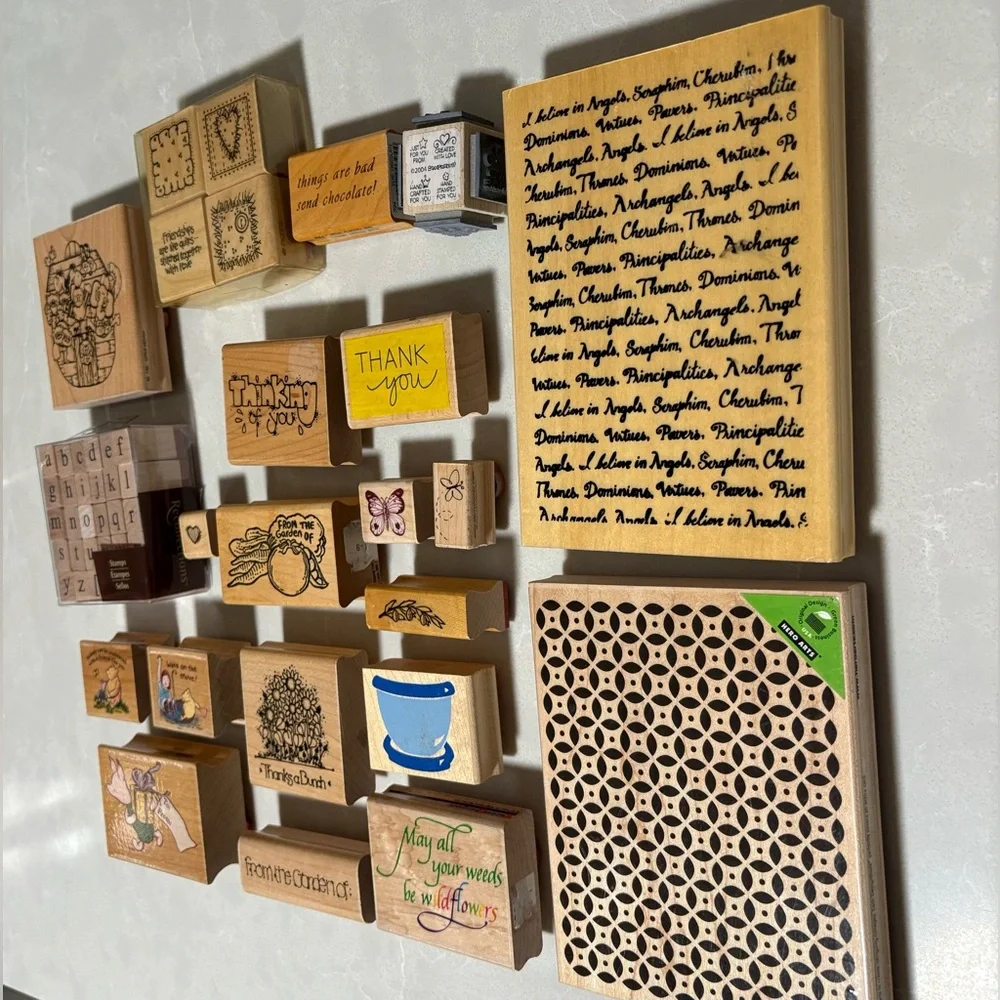 Friendships
are like quilts
stitched together
with love
things are bad
send chocolate!
JUST
FOR YOU
FROM
CREATED
WITH LOVE
HAND
CRAFTED
FOR YOU
HAND
STAMPED
FOR YOU
I believe in Angels, Seraphim, Cherubim,
Dominions, Virtues, Powers, Principalitie
Archangels, Angels. I believe in Angels, S
Cherubim, Thrones, Dominions, Virtues, Po
Principalities, Archangels, Angels. I be
Angels, Seraphim, Cherubim, Thrones, Domin
Virtues, Powers, Principalities, Archange
Seraphim, Cherubim, Thrones, Dominions, V
Powers, Principalities, Archangels, Angel
elieve in Angels, Seraphim, Cherubim, Thro
Virtues, Powers, Principalities, Archange
I believe in Angels, Seraphim, Cherubim, T
Dominions, Virtues, Powers, Principalitie
Angels. I believe in Angels, Seraphim, Cheru
Thrones, Dominions, Virtues, Powers, Prin
Archangels, Angels. I believe in Angels, S
Thinking
of you
THANK
you
a b c d e f
g h i j k l
m n o p q r
s t u
y z
Stamps
Étampes
Sellos
FROM THE
Garden OF
Thanks a Bunch
From the Garden of:
May all
your weeds
be wildflowers
Original Design
Green Business
USA
HERO ARTS